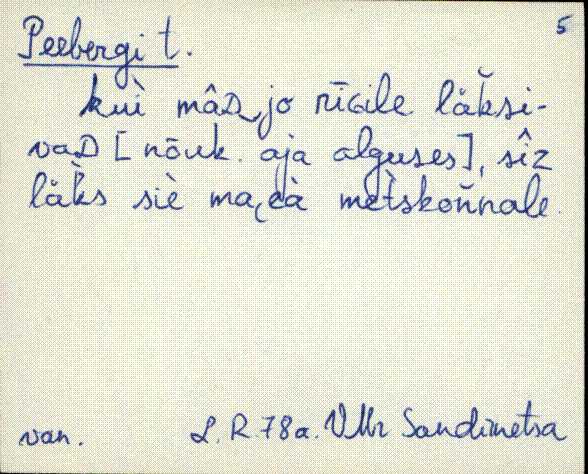 5
Peebergi t.
kuì mâᴅ‿jo rīGile läk̆si-
vaᴅ [nõuk. aja alguses], sîz
läk̀s siè maGà met̀skon̆nale.
van. L. R. 78a. VMr Sandimetsa